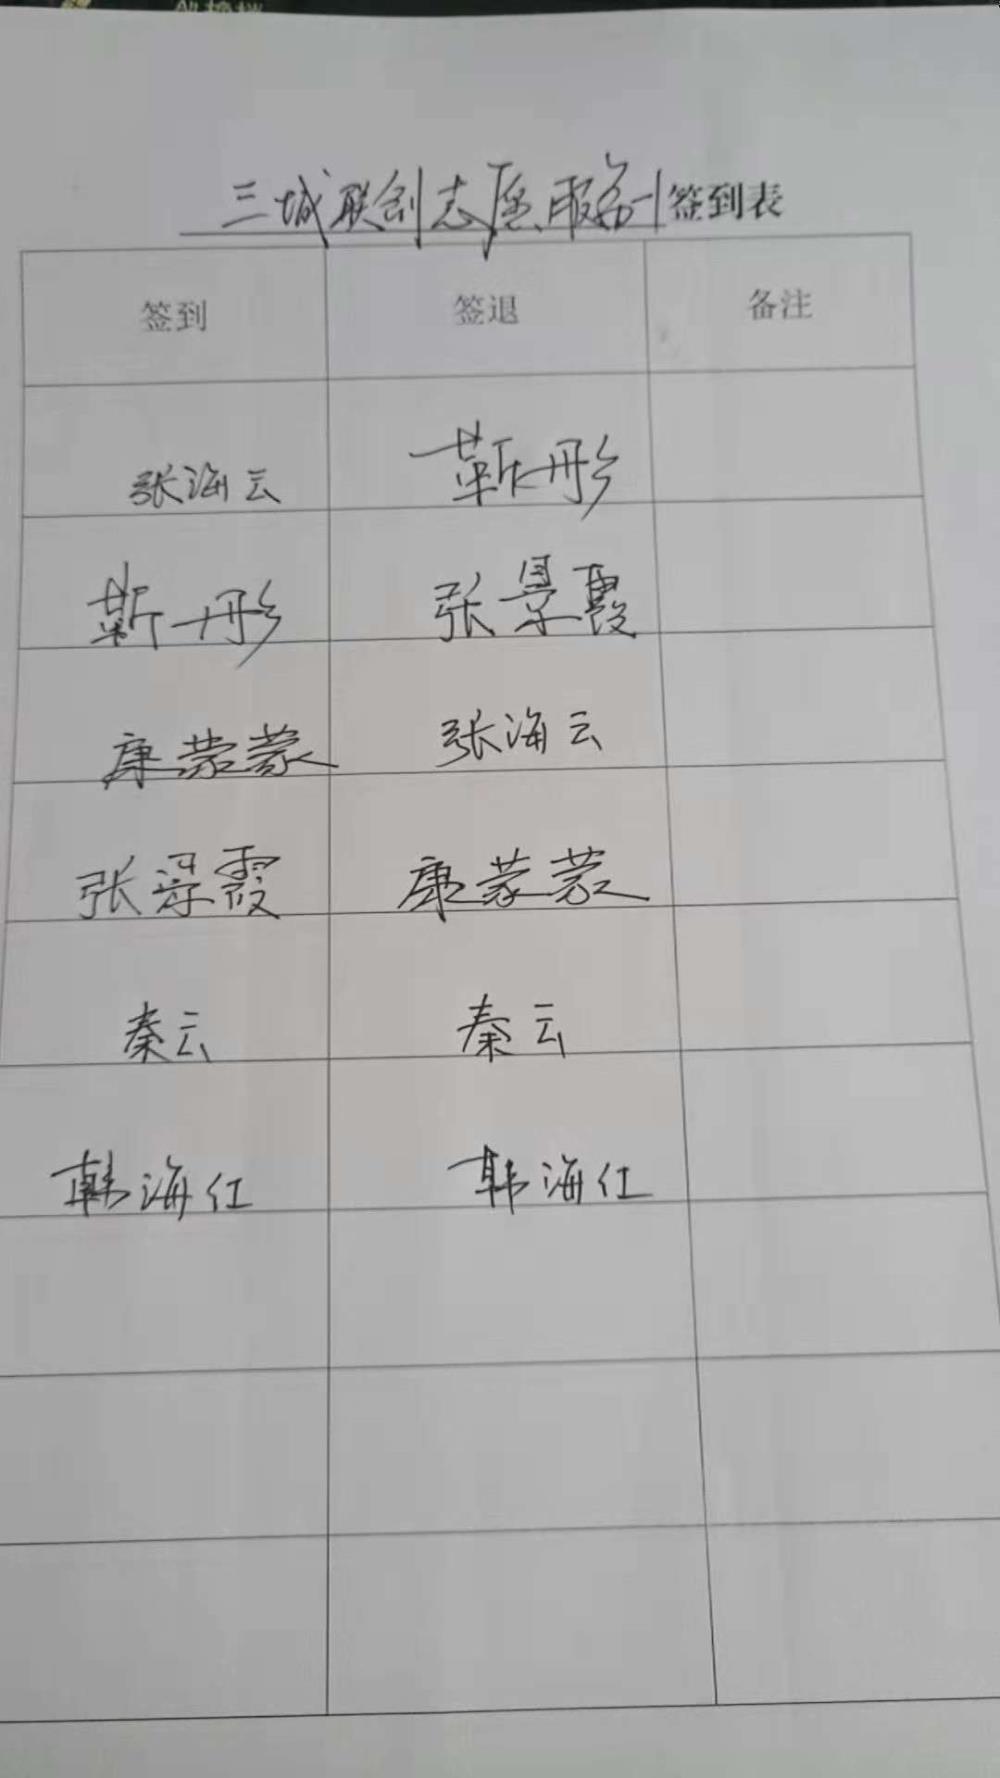 三城联创志愿服务签到表
签到 签退 备注
张海云 靳彤
靳彤 张景霞
康蒙蒙 张海云
张景霞 康蒙蒙
秦云 秦云
韩海红 韩海红